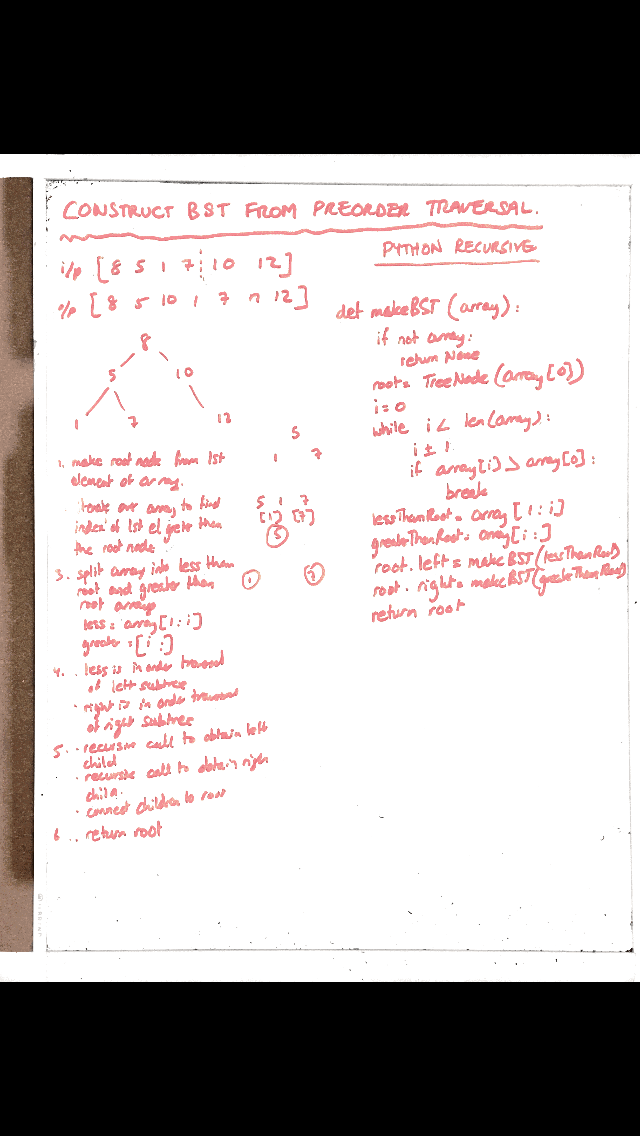 CONSTRUCT BST FROM PREORDER TRAVERSAL.
PYTHON RECURSIVE
i/p [8 5 1 7 10 12]
o/p [8 5 10 1 7 n 12]
8
5 10
1 7 12
5
1 7
1. make root node from 1st
element of array.
iterate over array to find
index of 1st el gete than
the root node
5 1 7
[1] [7]
5
1 7
3. split array into less than
root and greater than
root arrays
less = array[1:i]
greater = [i:]
4. . less is in order traversal
of left subtree
. right is in order traversal
of right subtree
5. . recursive call to obtain left
child
. recursive call to obtain right
child.
. connect children to root
6 .. return root
def makeBST (array):
if not array:
return None
root= TreeNode(array[0])
i=0
while i < len(array):
i ± 1
if array[i) > array[0]:
break
lessThanRoot = array [1:i]
greaterThanRoot = array[i:]
root. left = makeBST(lessThanRoot)
root. right = makeBST(greaterThanRoot)
return root